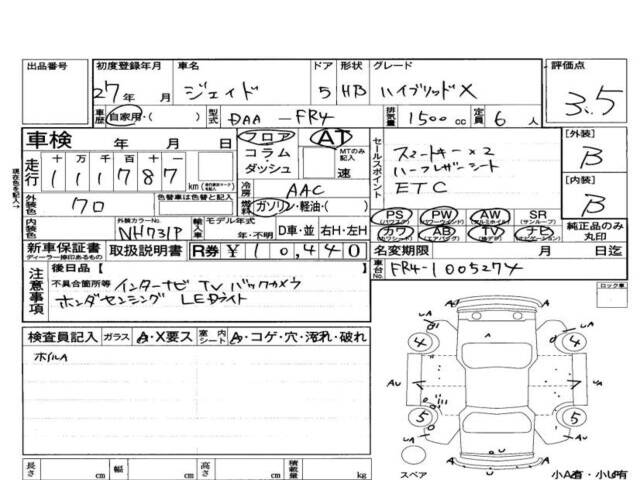 出品番号 初度登録年月 車名 ドア 形状 グレード 評価点
27年 月 ジェイド 5 HB ハイブリッドX 3.5
車歴 自家用・( ) 型式 DAA-FR4 排気量 1500cc 定員 6人
車検 年 月 日 フロア AT セールスポイント スマートキー×2 [外装]
コラム MTのみ記入 ハーフレザーシート B
走行 十 万 千 百 十 一 ダッシュ 速 ETC
111787 km 冷房 AAC [内装]
外装色 クロ 色替車は色替と記入 燃料 ガソリン・軽油・( ) PS PW AW SR B
(パワステ) (パワーウインド) (アルミホイル) (サンルーフ)
内装色 外装カラーNo. NH731P 輸入車 モデル年式 年・不明 D車・並 右H・左H カワ AB TV ナビ 純正品のみ丸印
新車保証書 取扱説明書 R券 ¥10,440 名変期限 月 日迄
ディーラー捺印あるもの
車台No. FR4-1005274
現在色を記入→
注意事項 後日品【
不具合箇所等 インターナビ TV バックカメラ
ホンダセンシング LEDライト
ロック車
検査員記入 ガラス A・X要ス 室内シート A・コゲ・穴・汚れ・破れ
ホイルA
4 4
AU AU
5 5
スペア 小A有・小U有
長さ cm 幅 cm 高さ cm 積載量 kg